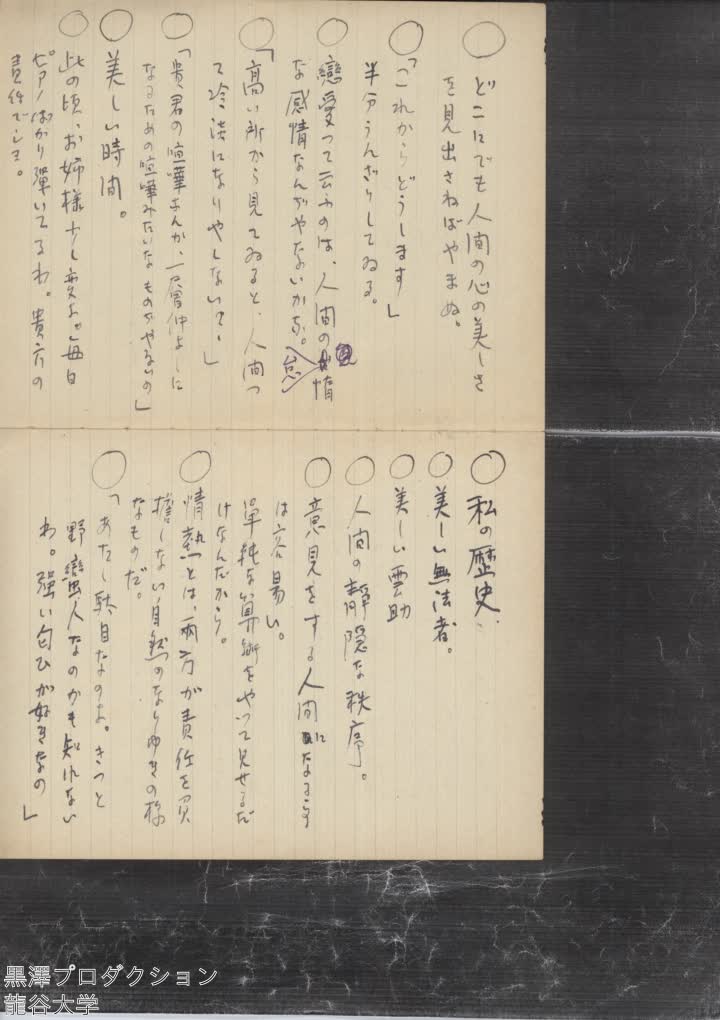 ○ どこにでも人間の心の美しさ
を見出さねばやまぬ。
○ 「これからどうします」
半分うんざりしてゐる。
○ 戀愛つて云ふのは、人間の情
怠
な感情なんぢやないかな。
○ 「高い所から見てゐると、人間つ
て冷淡になりやしないで。」
○ 「貴君の喧嘩なんか、一層仲よしに
なるための喧嘩みたいなものぢやないの」
○ 美しい時間。
○ 此の頃、お姉様少し変よ。毎日
ピアノばかり彈いてるわ。貴方の
責任でしよ。
○ 私の歴史、
○ 美しい無法者。
○ 美しい雲助
○ 人間の靜隱な秩序。
○ 意見をする人間になる事
は容易い。
單純な算術をやつて見せるだ
けなんだから。
○ 情熱とは、両方が責任を
擔しない自然のなりゆきの様
なものだ。
○ 「あたし駄目なのよ。きつと
野蠻人なのかも知れない
わ。強い匂ひが好きなの」
黒澤プロダクション
龍谷大学